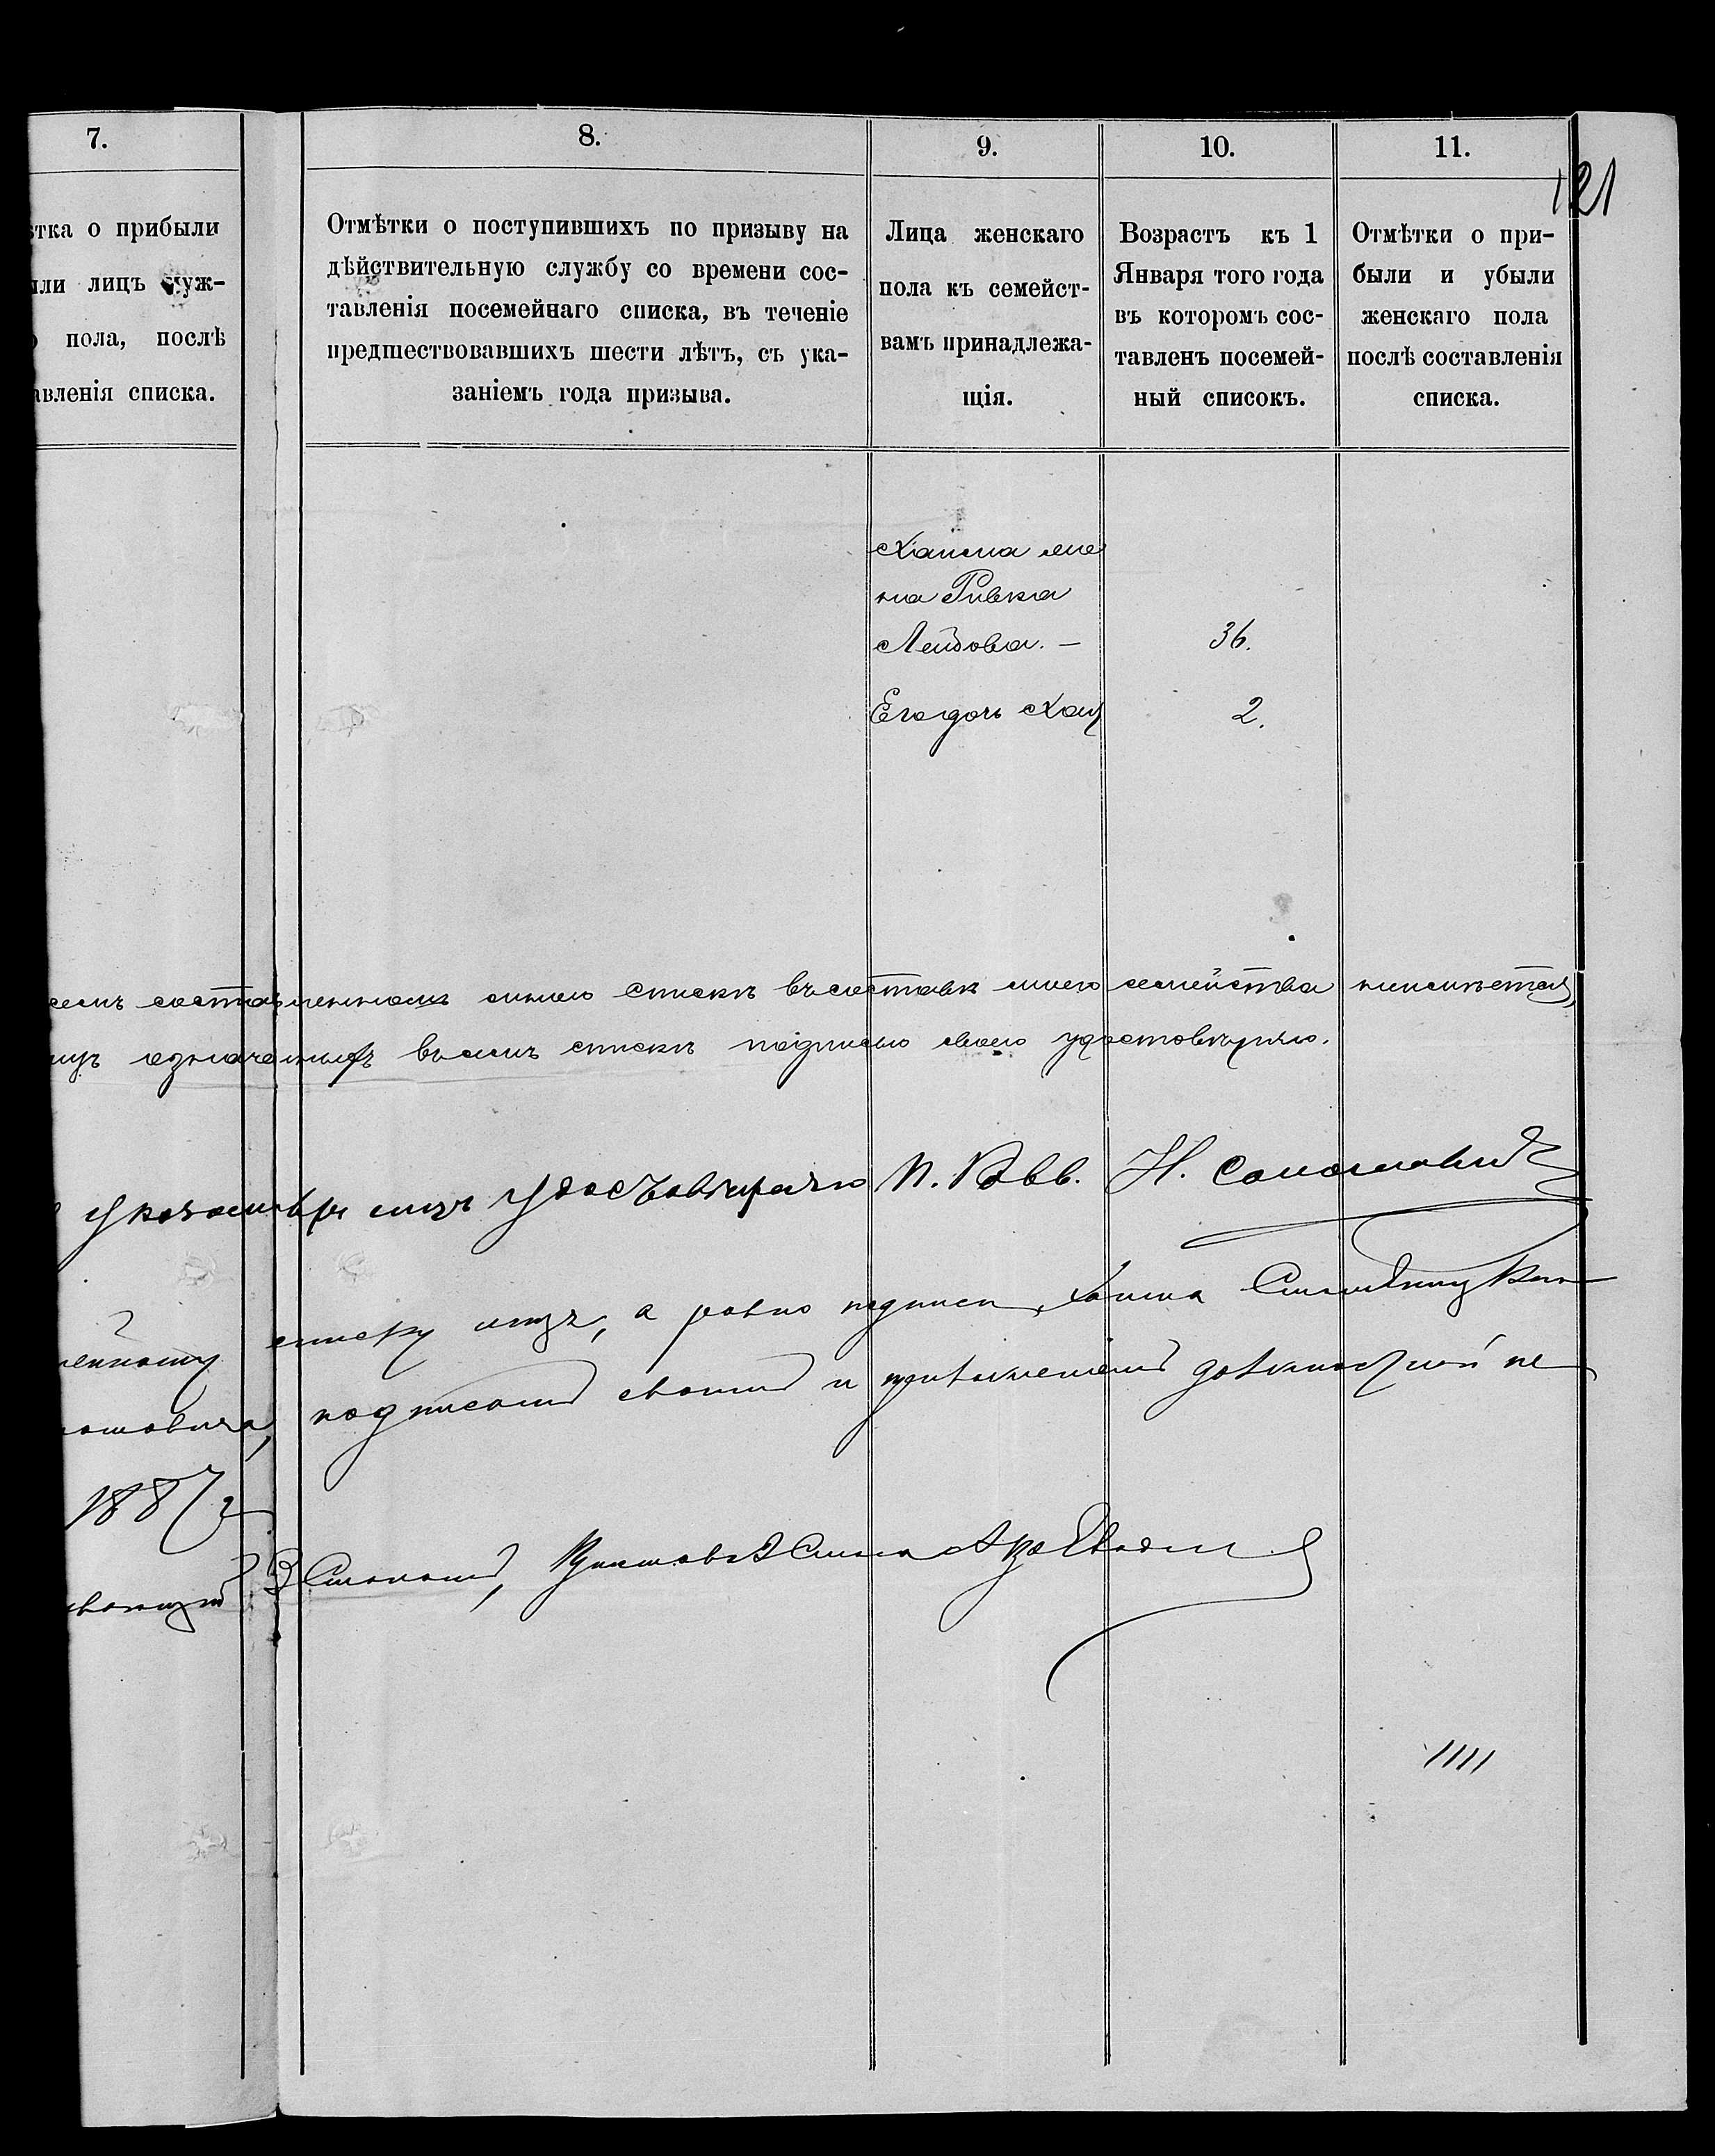 7.
8.
9.
10.
11.
121
ѣтка о прибыли
или лицъ муж-
о пола, послѣ
авленія списка.
Отмѣтки о поступившихъ по призыву на
дѣйствительную службу со времени сос-
тавленія посемейнаго списка, въ теченіе
предшествовавшихъ шести лѣтъ, съ ука-
заніемъ года призыва.
Лица женскаго
пола къ семейст-
вамъ принадлежа-
щія.
Возрастъ къ 1
Января того года
въ которомъ сос-
тавленъ посемей-
ный списокъ.
Отмѣтки о при-
были и убыли
женскаго пола
послѣ составленія
списка.
Хаима же
на Ривка
Лейбова. – 36.
Его дочь Хая 2.
семъ составленномъ мною спискѣ въ составѣ моего семейства неимѣется,
лицъ означенныхъ въ семъ спискѣ подписью своею удостовѣряю.
указанныхъ лицъ удостовѣряю П. Равв. Н. Соломоновичъ
енному списку лицъ, а равно подписи Хаима
мовича, подписомъ своимъ и приложеніемъ должностной пе
1887 г